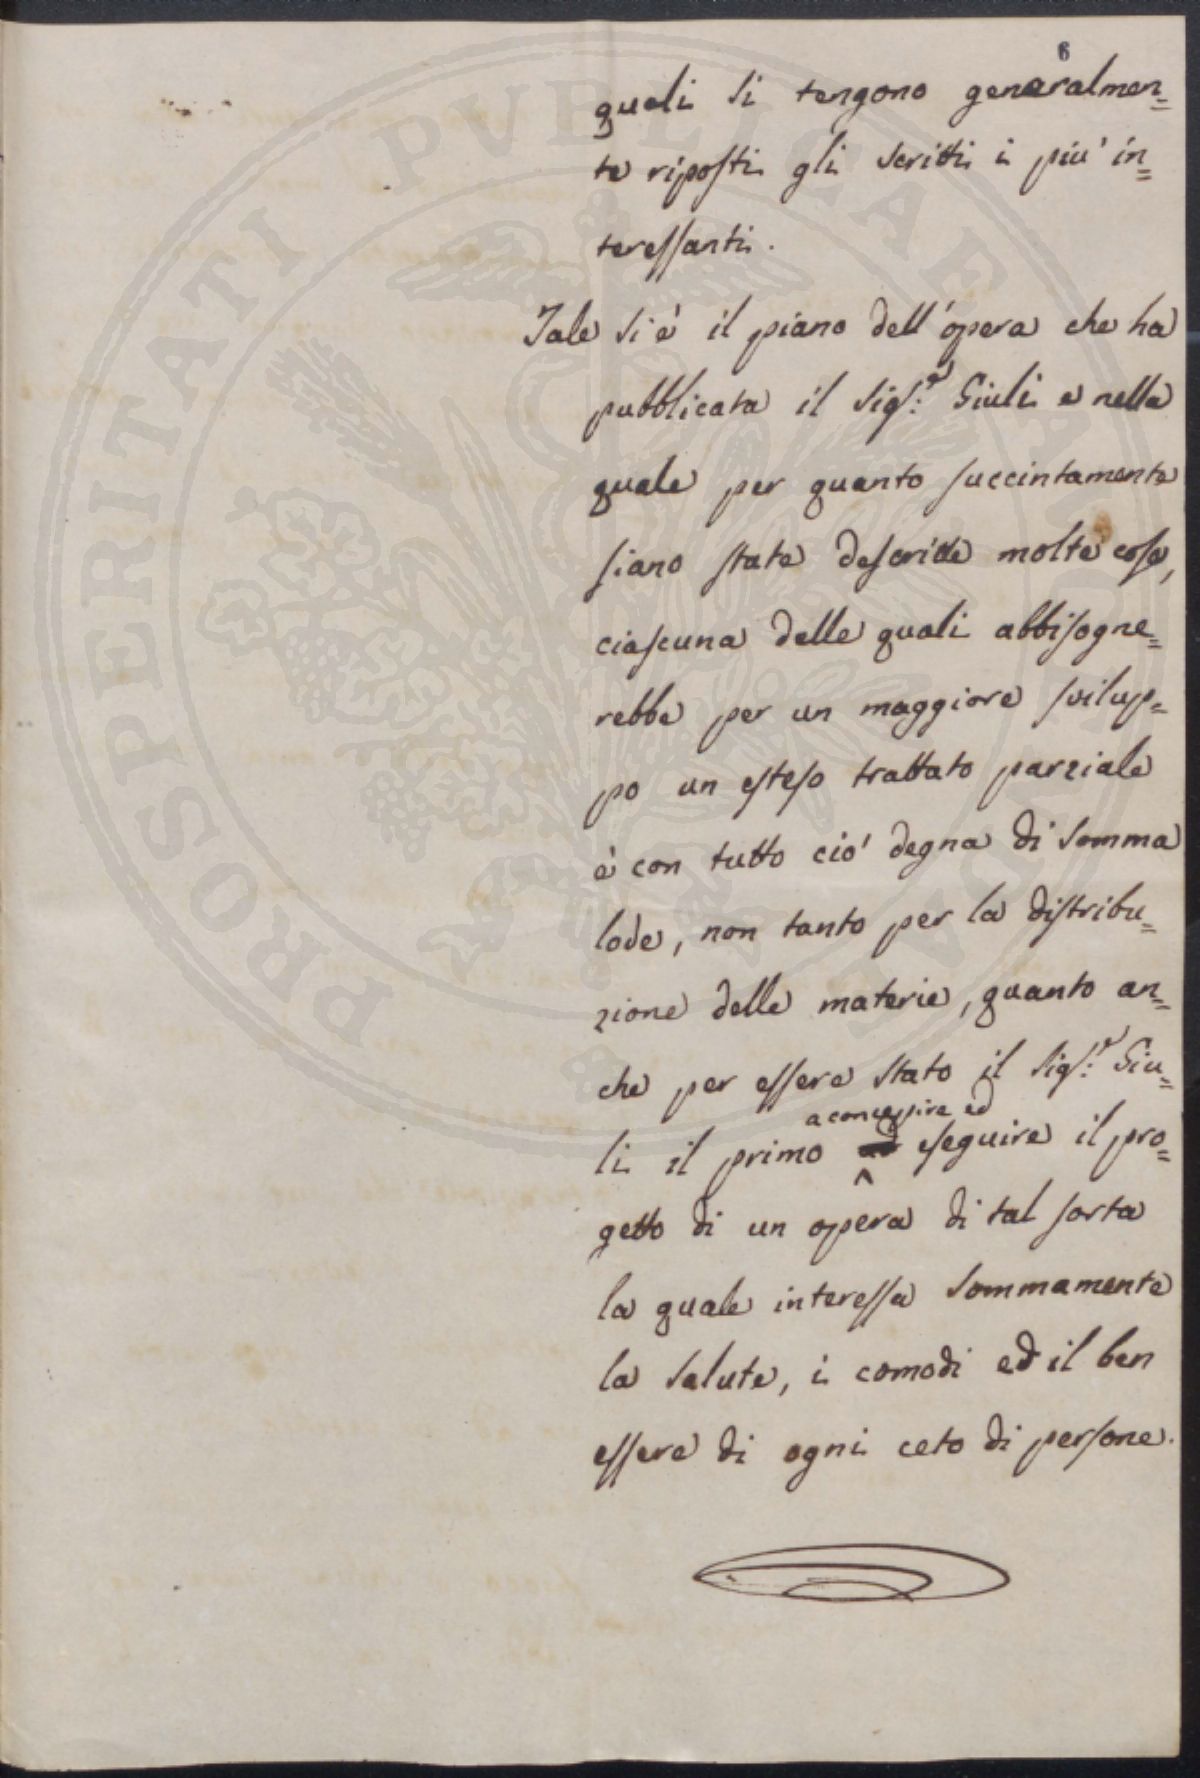 6
quali si tengono generalmen=
te riposti gli scritti i più in=
teressanti.
Tale si è il piano dell'opera che ha
pubblicata il Sig.re Giuli e nella
quale per quanto succintamente
siano state descritte molte cose,
ciascuna delle quali abbisogne=
rebbe per un maggiore svilup=
po un esteso trattato parziale
è con tutto ciò degna di somma
lode, non tanto per la distribu=
zione delle materie, quanto an=
che per essere stato il Sig.re Giu=
a concepire ed
li il primo ad eseguire il pro=
getto di un opera di tal sorta
la quale interessa sommamente
la salute, i comodi ed il ben
essere di ogni ceto di persone.
PROSPERITATI PVBLICAE AVGENDAE